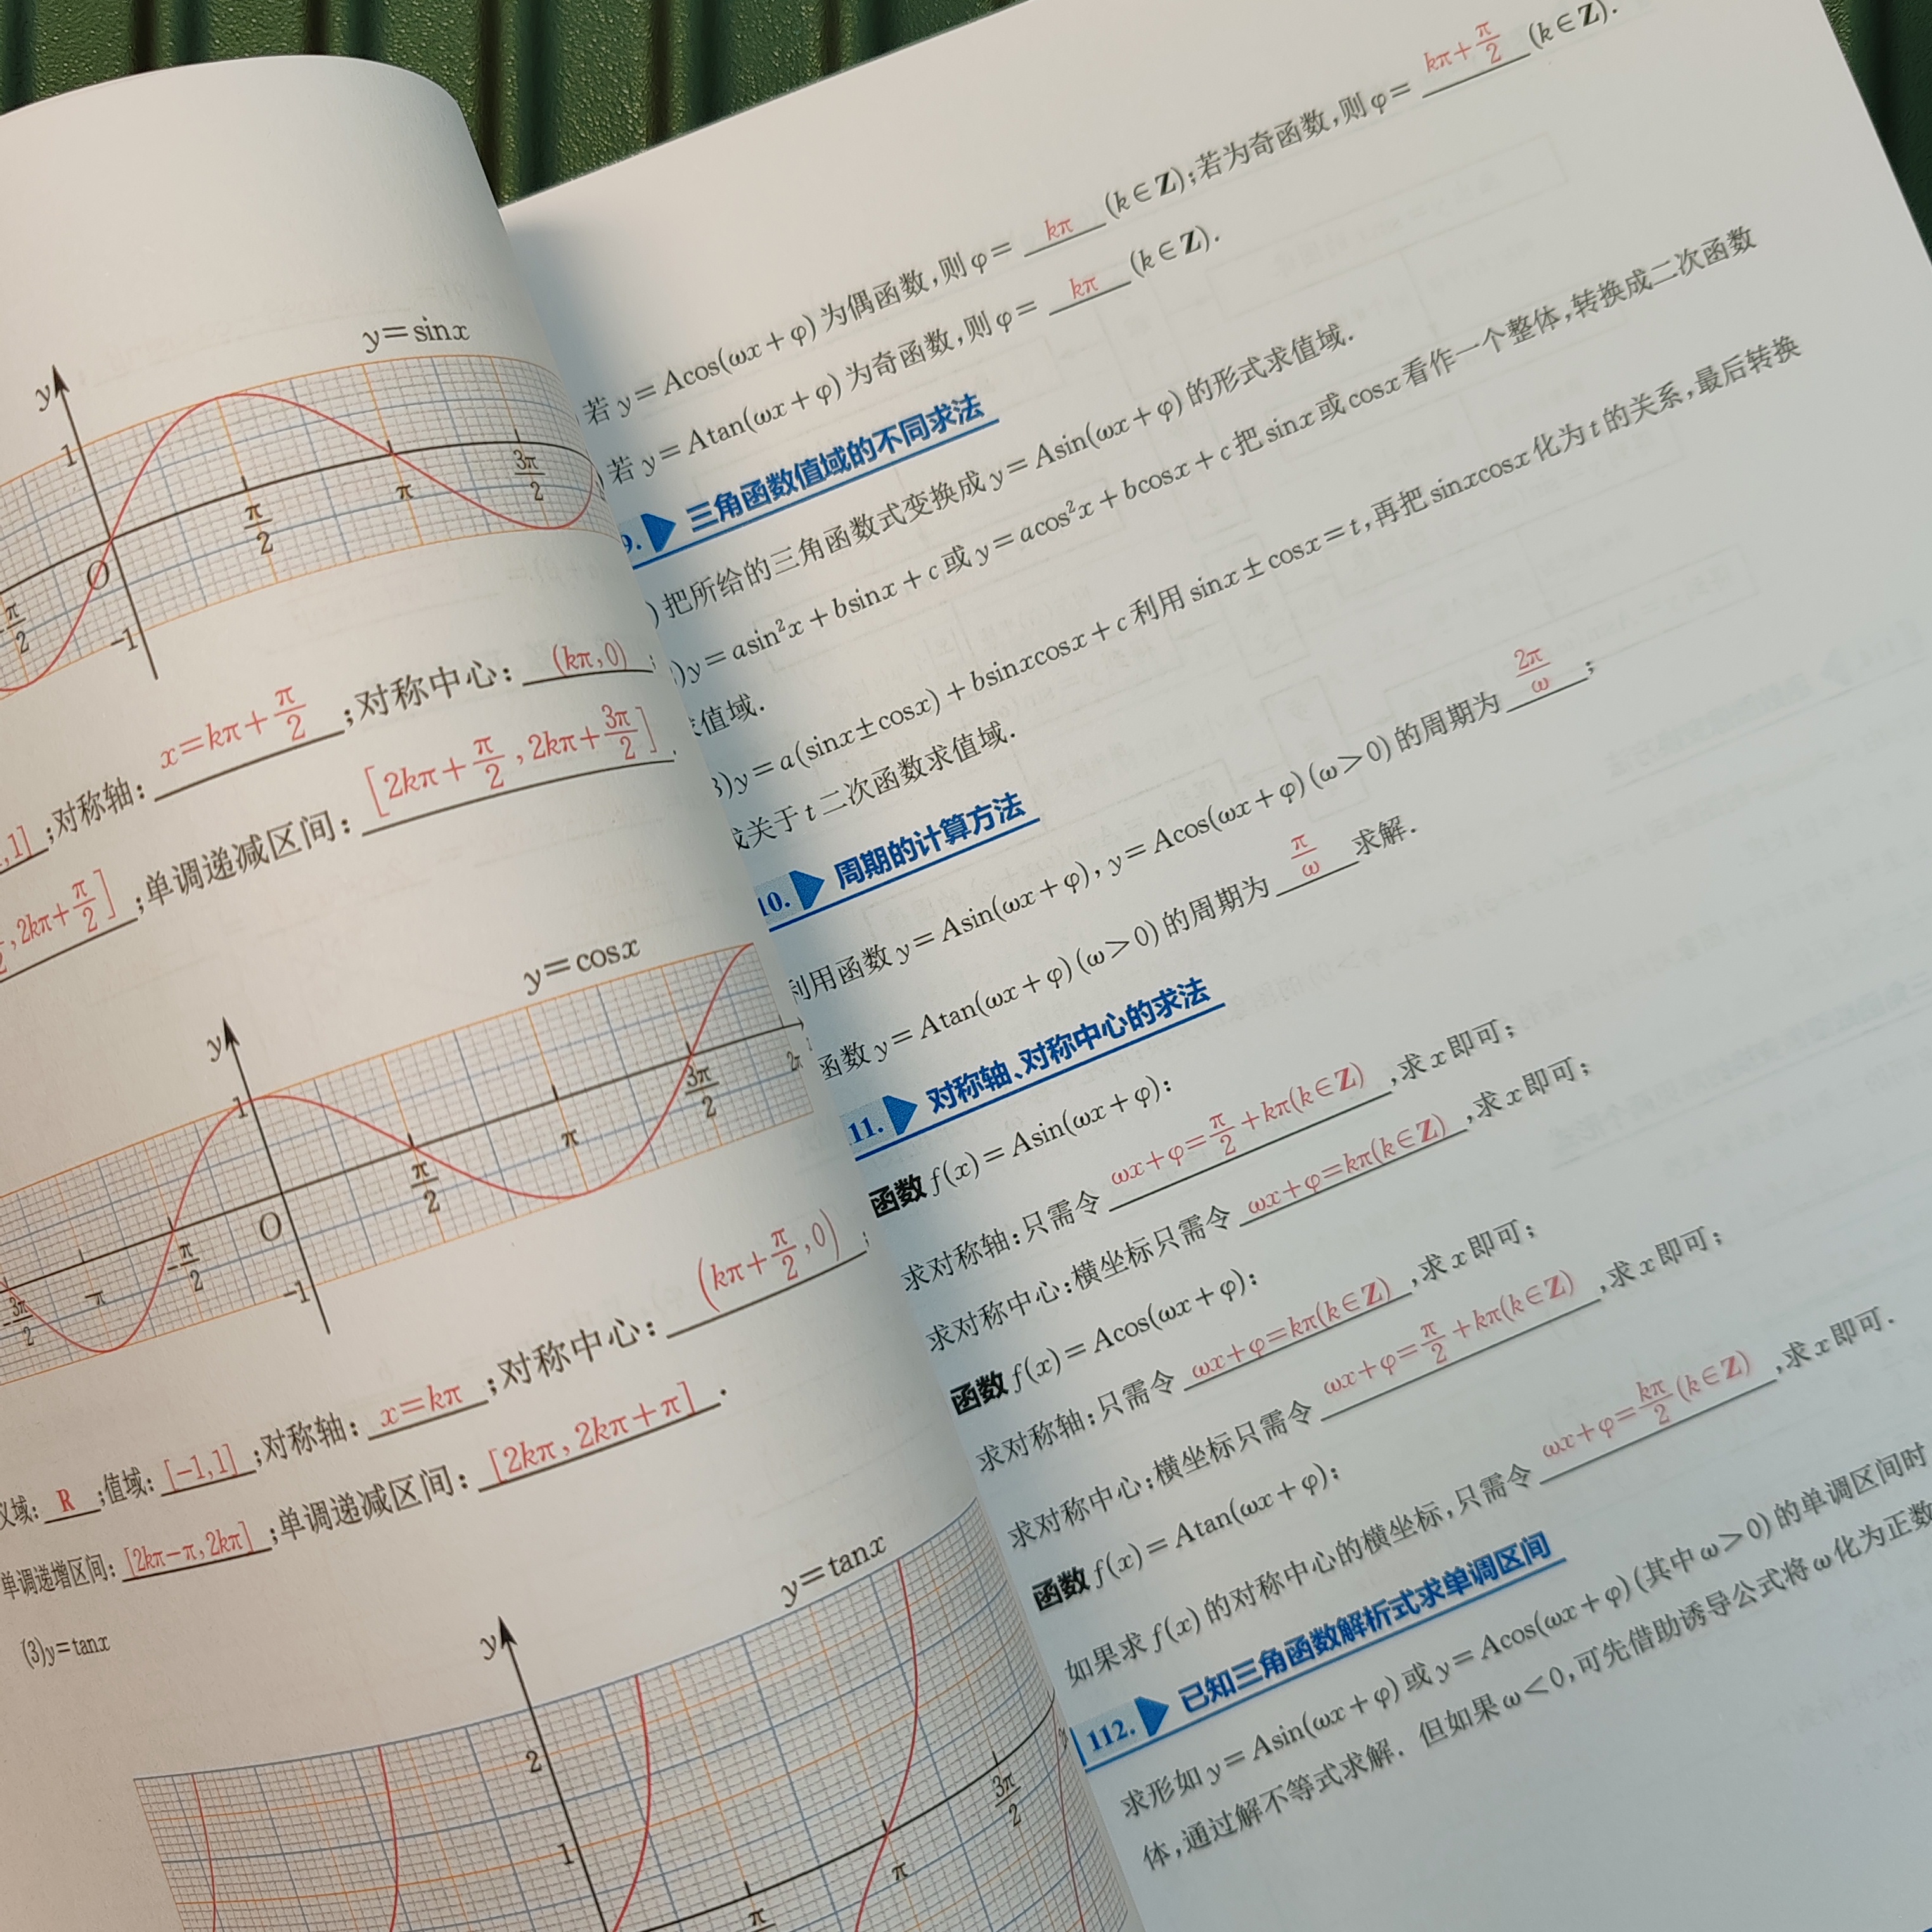 y=sinx
y
1
O
-1
-π/2
π/2
π
3π/2
,1];对称轴:x=kπ+π/2;对称中心:(kπ,0);
,2kπ+π/2];单调递减区间:[2kπ+π/2,2kπ+3π/2].
y=cosx
y
1
O
-1
-3π/2
-π
-π/2
π/2
π
3π/2
2π
义域:R;值域:[-1,1];对称轴:x=kπ;对称中心:(kπ+π/2,0);
单调递增区间:[2kπ-π,2kπ];单调递减区间:[2kπ,2kπ+π].
(3)y=tanx
y=tanx
y
2
1
π
π
3π/2
若y=Acos(ωx+φ)为偶函数,则φ=kπ(k∈Z);若为奇函数,则φ=kπ+π/2(k∈Z).
若y=Atan(ωx+φ)为奇函数,则φ=kπ(k∈Z).
9. 三角函数值域的不同求法
)把所给的三角函数式变换成y=Asin(ωx+φ)的形式求值域.
)y=asin²x+bsinx+c或y=acos²x+bcosx+c把sinx或cosx看作一个整体,转换成二次函数
求值域.
3)y=a(sinx±cosx)+bsinxcosx+c利用sinx±cosx=t,再把sinxcosx化为t的关系,最后转换
成关于t二次函数求值域.
10. 周期的计算方法
利用函数y=Asin(ωx+φ),y=Acos(ωx+φ)(ω>0)的周期为2π/ω;
函数y=Atan(ωx+φ)(ω>0)的周期为π/ω求解.
11. 对称轴、对称中心的求法
函数f(x)=Asin(ωx+φ):
求对称轴:只需令ωx+φ=π/2+kπ(k∈Z),求x即可;
求对称中心:横坐标只需令ωx+φ=kπ(k∈Z),求x即可;
函数f(x)=Acos(ωx+φ):
求对称轴:只需令ωx+φ=kπ(k∈Z),求x即可;
求对称中心:横坐标只需令ωx+φ=π/2+kπ(k∈Z),求x即可;
函数f(x)=Atan(ωx+φ):
如果求f(x)的对称中心的横坐标,只需令ωx+φ=kπ/2(k∈Z),求x即可.
112. 已知三角函数解析式求单调区间
求形如y=Asin(ωx+φ)或y=Acos(ωx+φ)(其中ω>0)的单调区间时
体,通过解不等式求解.但如果ω<0,可先借助诱导公式将ω化为正数